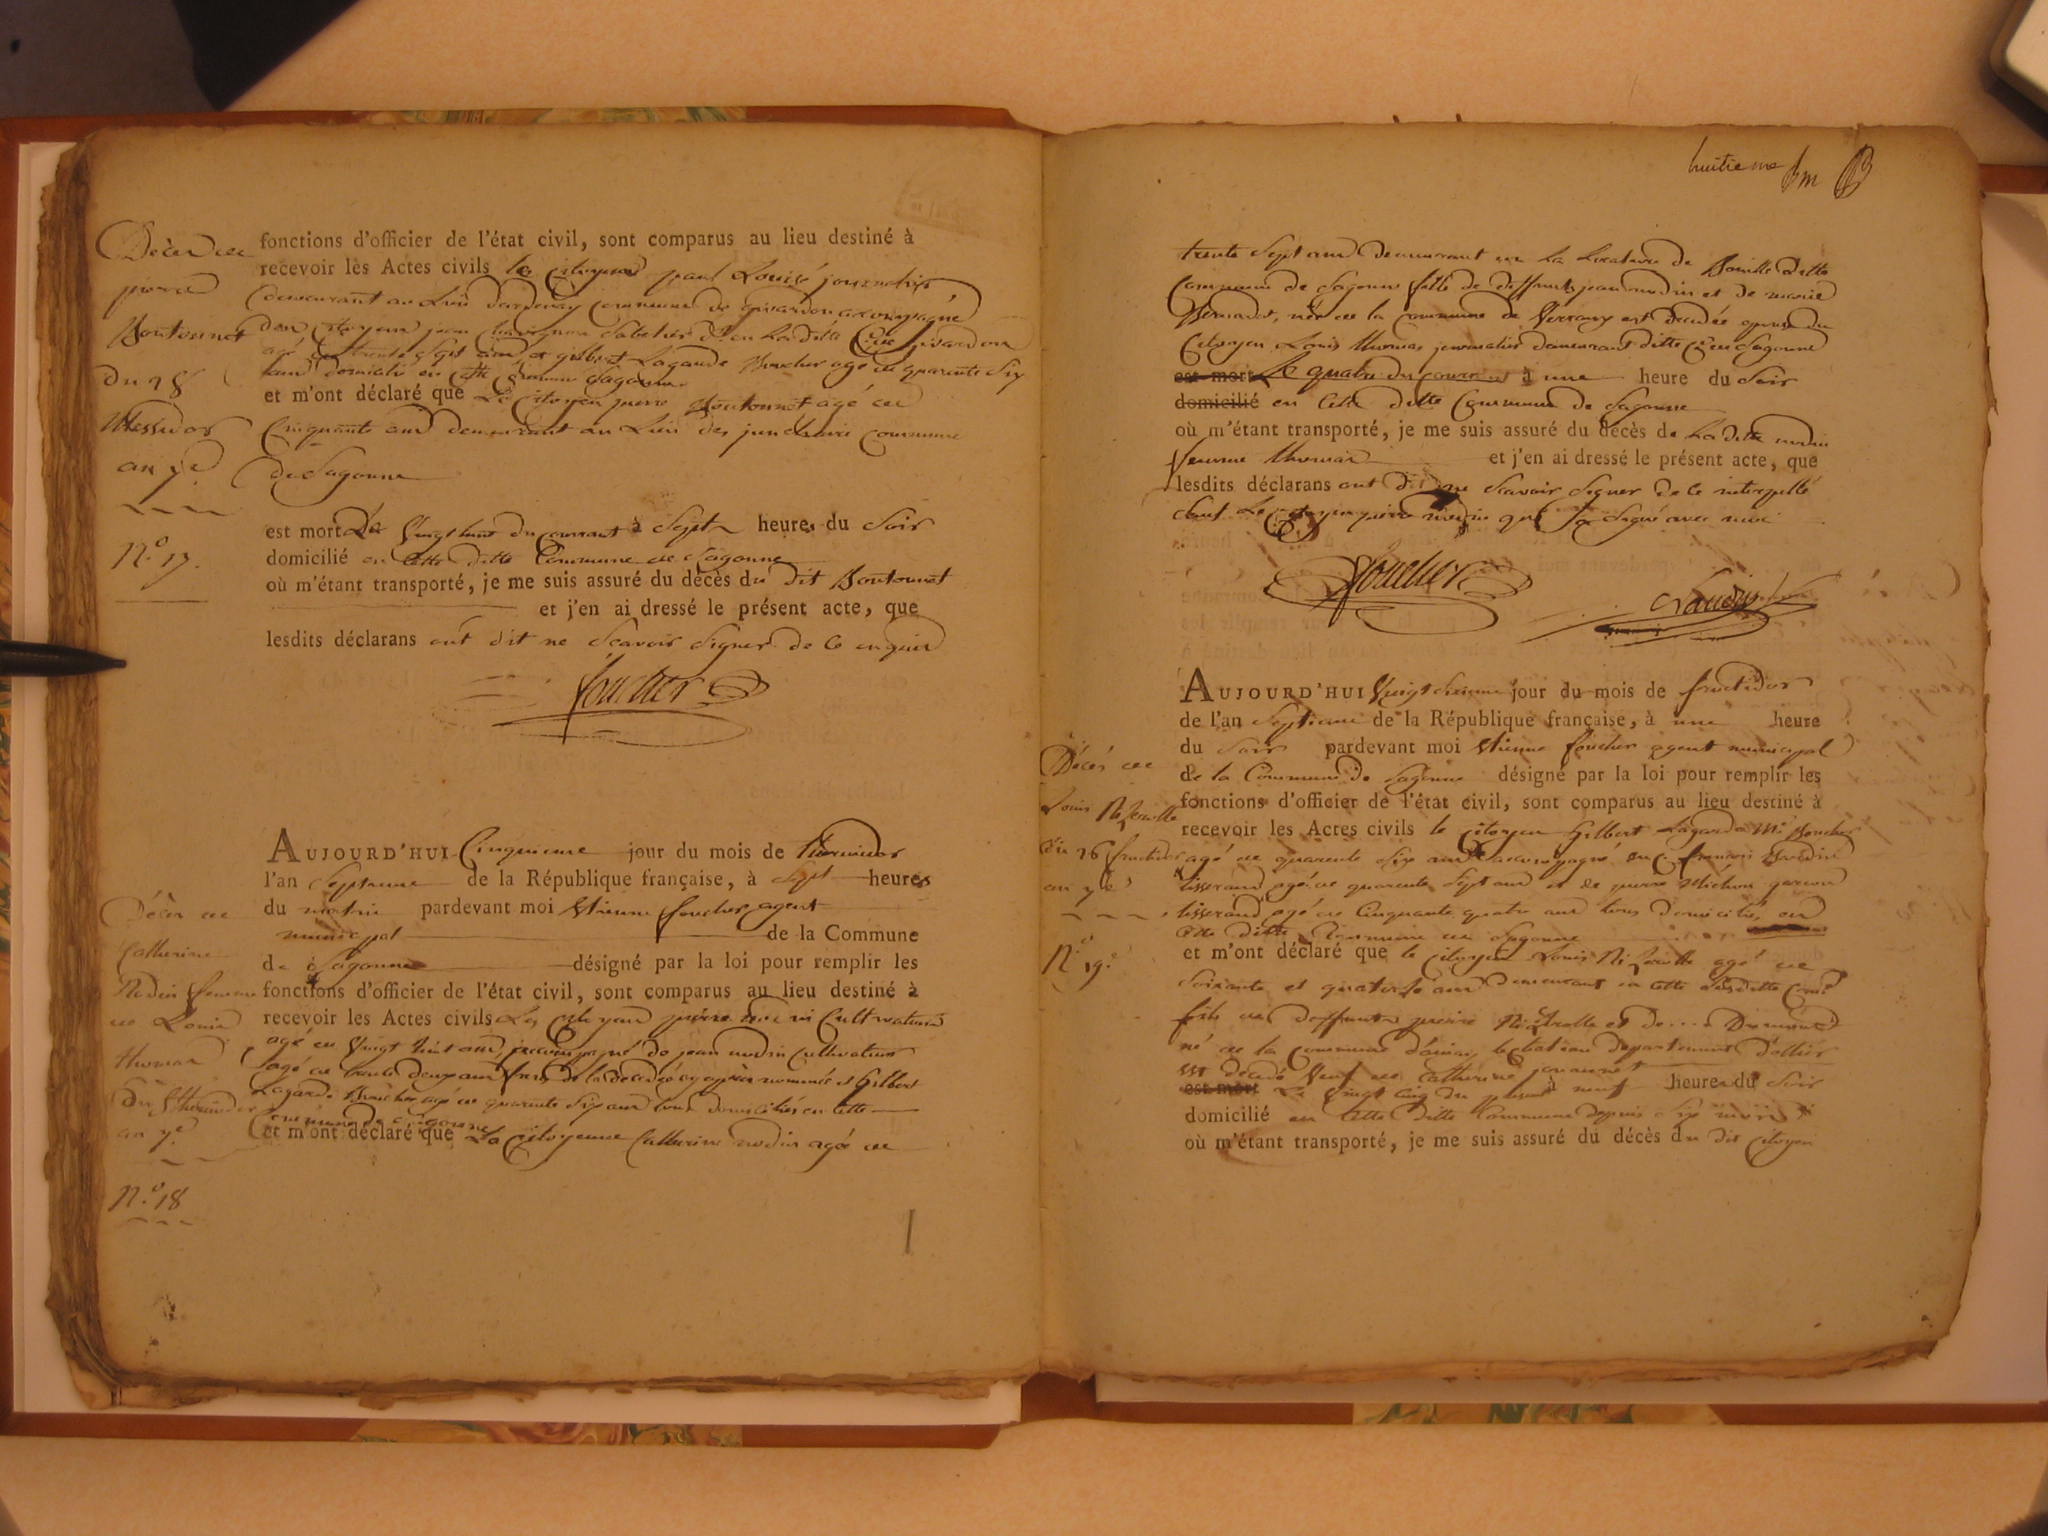 Décès de
pierre
Boutonnet
du 28
Messidor
an 7e
N.o 17.
fonctions d'officier de l'état civil, sont comparus au lieu destiné à
recevoir les Actes civils le Citoyen paul journalier
demeurant au Lieu commune de givardon accompagné
du Citoyen jean Sabotier en La ditte Cne givardon
agé de trente Sept ans et gilbert Lagarde Boucher agé de quarente Six
ans domicilié en cette Commune Sagonne
et m'ont déclaré que Le Citoyen pierre Boutonnet agé de
Cinquante ans demeurant au Lieu des commune
de Sagonne
est mort Le Vingt huit du courrant à Sept heures du Soir
domicilié en Cette ditte Commune de Sagonne
où m'étant transporté, je me suis assuré du décès du dit Boutonnet
et j'en ai dressé le présent acte, que
lesdits déclarans ont dit ne Scavoir Signer de ce enquis
foucher
Décès de
Catherine
Nodin femme
de Louis
thomas
Du 5 thermidor
an 7e
N.o 18
AUJOURD'HUI Cinquieme jour du mois de thermidor
l'an Septieme de la République française, à Sept heures
du matin pardevant moi Etienne foucher agent
municipal de la Commune
de Sagonne désigné par la loi pour remplir les
fonctions d'officier de l'état civil, sont comparus au lieu destiné à
recevoir les Actes civils Les Citoyens pierre Cultivateur
agé de Vingt huit ans, accompagné de jean nodin Cultivateur
agé de trente deux ans frere de la décédée cy après nommée et Gilbert
Lagarde Boucher agé de quarente Six ans tous domiciliés en cette
Commune de Sagonne
et m'ont déclaré que La Citoyenne Catherine nodin agée de
huitieme
trente Sept ans demeurant en La Locature de ditte
Commune de Sagonne fille de deffunt jean nodin et de marie
née de la commune de est décédée epouse du
Citoyen Louis thomas journalier demeurant ditte Cne Sagonne
est mort Le quatre du courrant à une heure du Soir
domicilié en Cette ditte Commune de Sagonne
où m'étant transporté, je me suis assuré du décès de La ditte nodin
femme thomas et j'en ai dressé le présent acte, que
lesdits déclarans ont dit ne Scavoir Signer de ce interpellé
Le Citoyen pierre qui a Signé avec moi
foucher
Décès de
Louis
du 26 fructidor
an 7e
N.o 19.e
AUJOURD'HUI Vingt Sixieme jour du mois de fructidor
de l'an Septieme de la République française, à une heure
du Soir pardevant moi Etienne foucher agent municipal
de la Commune de Sagonne désigné par la loi pour remplir les
fonctions d'officier de l'état civil, sont comparus au lieu destiné à
recevoir les Actes civils le Citoyen Gilbert Lagarde Md Boucher
agé de quarente Six ans accompagné du C. françois
tisserand agé de quarente Sept ans et de pierre Michon garçon
tisserand agé de Cinquante quatre ans tous domiciliés en
Cette ditte Commune de Sagonne
et m'ont déclaré que le Citoyen Louis agé de
Soixante et quatorze ans demeurant en cette Susditte Comne
fils de deffunts pierre et de ....
né de la commune d'ainay le chateau département d'allier
est décédé Veuf de Catherine
est mort Le Vingt Cinq du présent à neuf heures du Soir
domicilié en Cette ditte Commune depuis Six mois
où m'étant transporté, je me suis assuré du décès du dit Citoyen